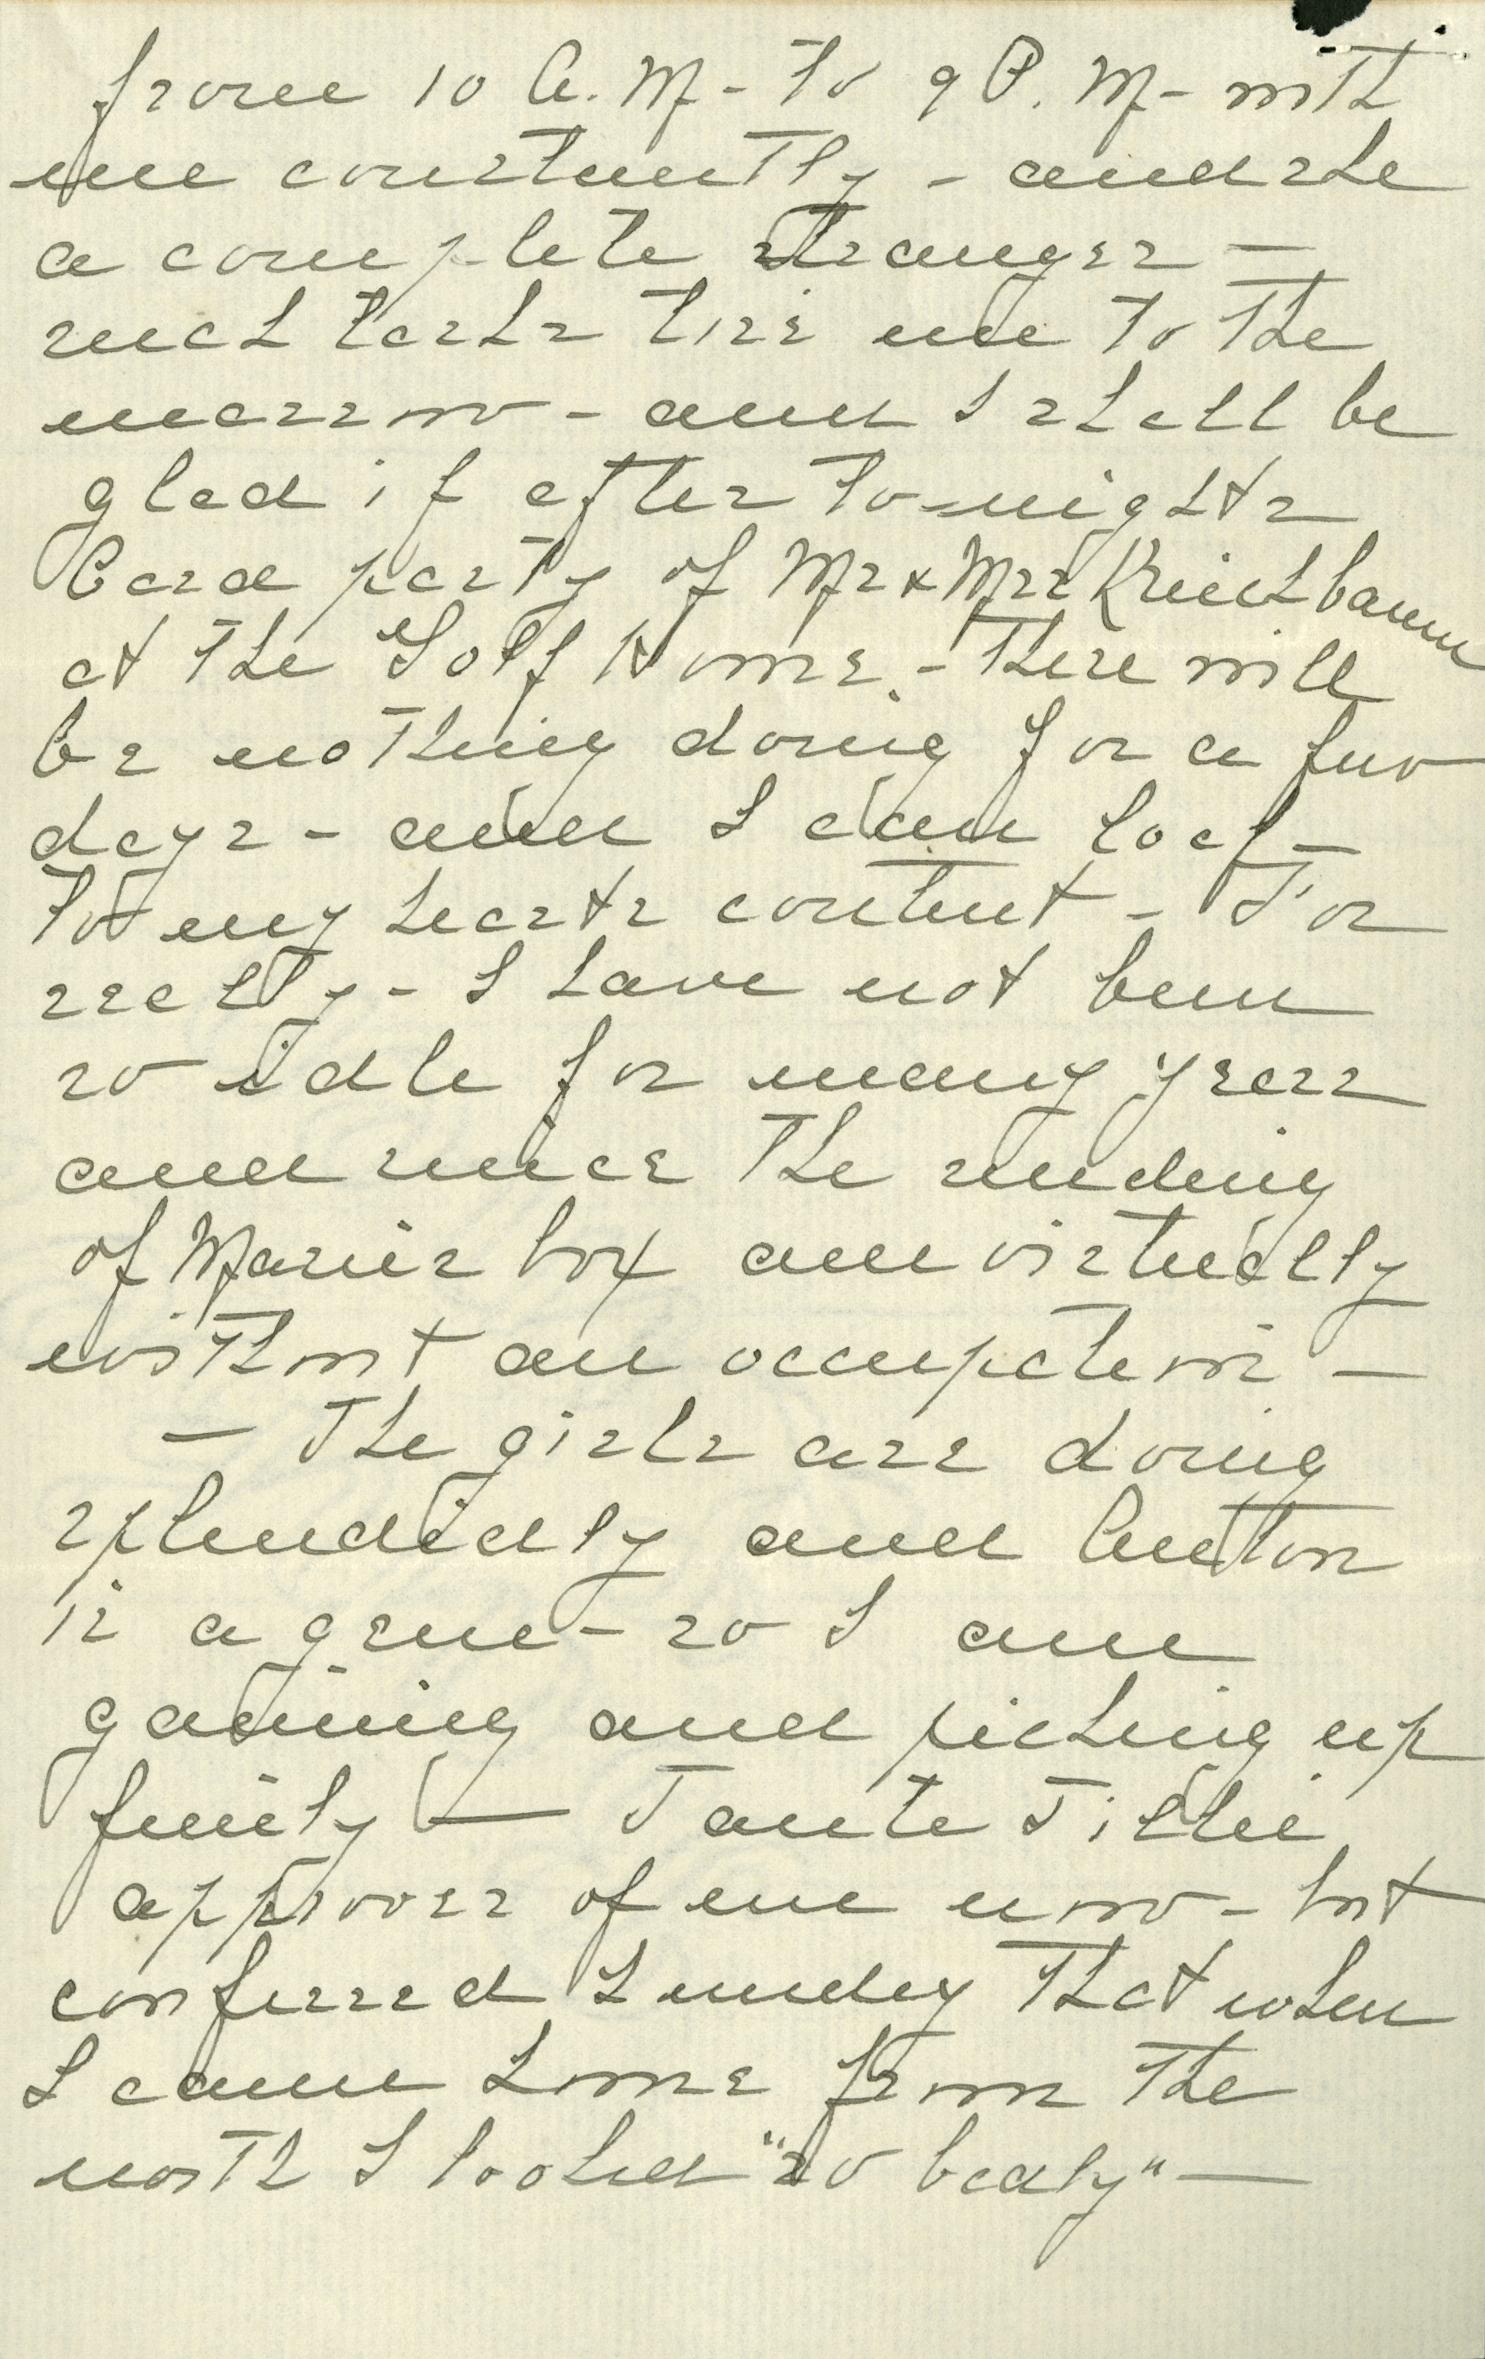 from 10 A.M- to 9 P.M- with
me constantly - and she
a complete stranger -
such tasks tire me to the
marrow - and I shall be
glad if after to-nights
Card party of Mr & Mrs Kreichbaum
at the Golf House. - there will
be nothing doing for a few
days - and I can loaf -
to my hearts content - For
really - I have not been
so idle for many years
and since the sending
of Maries box am virtually
without an occupation -
- The girls are doing
splendidly and Anton
is a gem - so I am
gaining and picking up
finely - Tante Tillie
approves of me now - but
confessed Sunday that when
I came home from the
north I looked "so badly" -